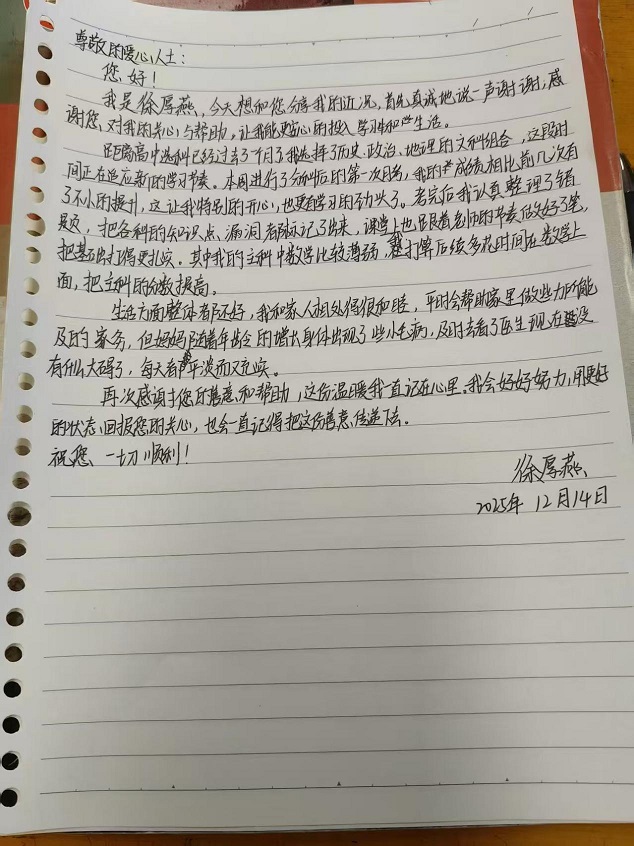 尊敬的爱心人士：
您好！
我是徐厚燕，今天想和您分享我的近况，首先真诚地说一声谢谢，感
谢您对我的关心与帮助，让我能更安心的投入学习和生活。
距离高中选科已经过去了一个月了我选择了历史、政治、地理的文科组合，这段时
间正在适应新的学习节奏。本周进行了分科后的第一次月考，我的成绩相比前几次有
了不小的提升，这让我特别的开心，也更有学习的劲头了。考完后我认真整理了错
题，把各科的知识点、漏洞都标记了出来，课堂上也跟着老师的节奏做好了笔，
把基础打得更扎实。其中我的主科中数学比较薄弱，我打算后续多花时间在数学上
面，把主科的分数提高。
生活方面整体都还好，我和家人相处得很和睦，平时会帮助家里做些力所能
及的家务，但妈妈随着年龄的增长身体出现了些小毛病，及时去看了医生现在没
有什么大碍了，每天都平淡而又充实。
再次感谢您的善意和帮助，这份温暖我一直记在心里。我会好好努力，用更好
的状态回报您的关心，也会一直记得把这份善意传递下去。
祝您一切顺利！
徐厚燕
2025年 12月14日